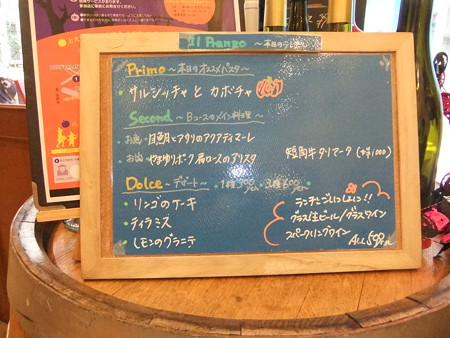 Il Pranzo ～本日のランチ～
Primo ～本日のオススメパスタ～
・サルシッチャ と カボチャ
Second ～Bコースのメイン料理～
・お魚・目鯛とアサリのアクアディマーレ
・お肉・やまゆりポーク肩ロースのアリスタ
短角牛タリアータ (+¥1000)
Dolce ～デザート～ ・1種 300yen ・3種 600yen
・リンゴのケーキ
・ティラミス
・レモンのグラニテ
ランチにごいっしょに!!
グラス生ビール/グラスワイン
スパークリングワイン
ALL 500yen